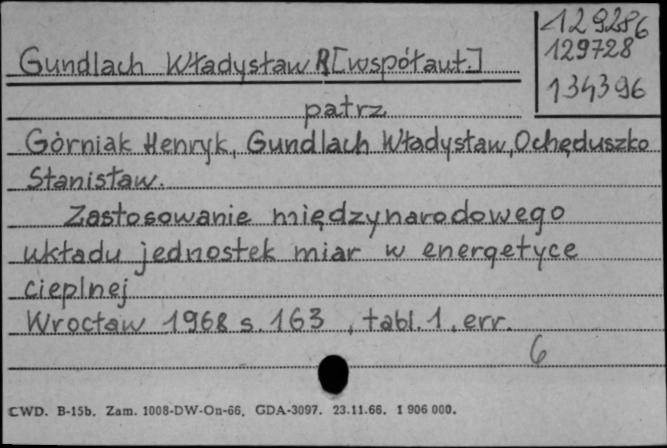 129286
129728
134396
Gundlach Władysław R[współaut.]
patrz
Górniak Henryk, Gundlach Władysław, Ochęduszko
Stanisław.
Zastosowanie międzynarodowego
układu jednostek miar w energetyce
cieplnej
Wrocław 1968 s. 163, tabl. 1, err.
6
CWD. B-15b. Zam. 1008-DW-On-66. GDA-3097. 23.11.66. 1 906 000.